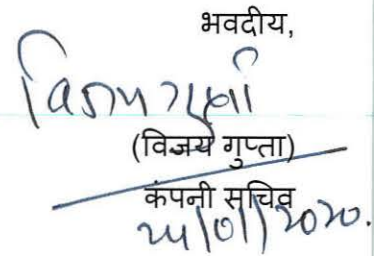 भवदीय,
विजय गुप्ता
(विजय गुप्ता)
कंपनी सचिव
24/01/2020.